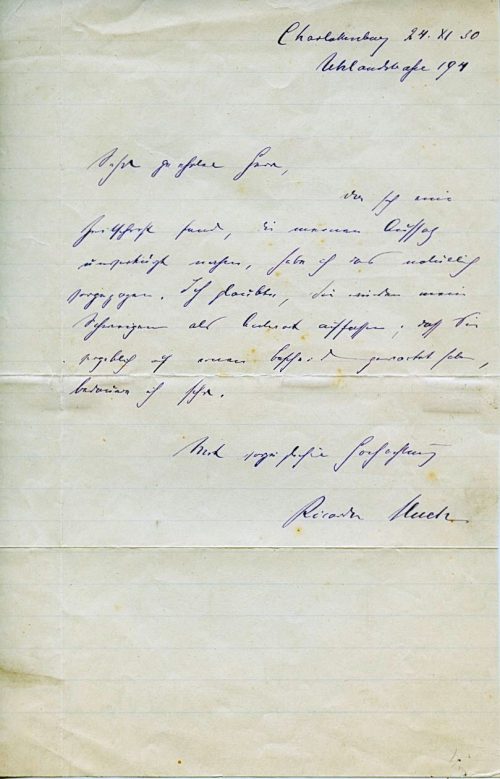 Charlottenburg 24. XI 30
Uhlandstraße 194
Sehr geehrter Herr,
da ich eine
Zeitschrift fand, die meinen Aufsatz
unverkürzt nahm, habe ich das natürlich
vorgezogen. Ich glaubte, Sie würden mein
Schweigen als Antwort auffassen; daß Sie
vergeblich auf einen Bescheid gewartet haben,
bedaure ich sehr.
Mit vorzüglicher Hochachtung
Ricarda Huch